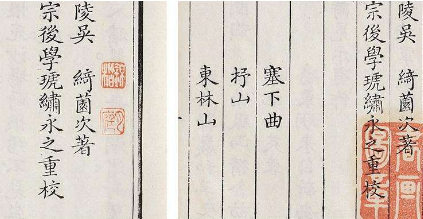 陵吳　綺薗次著
宗後學琥繡永之重校
陵吳　綺薗次著
宗後學琥繡永之重校
塞下曲
抒山
東林山